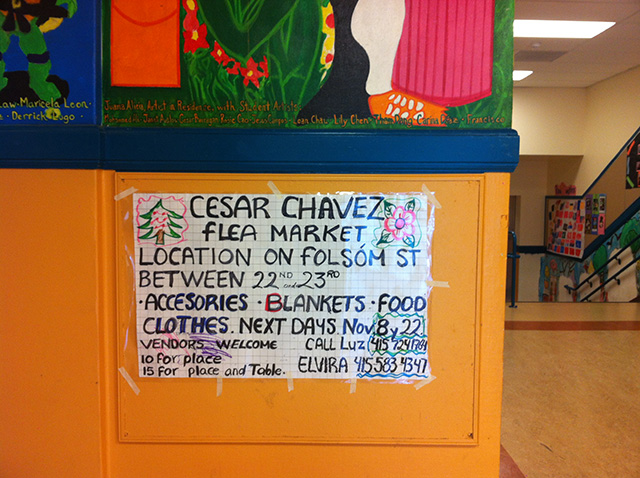 Law · Maricela Leon ·
Derrick Lugo ·
Juana Alicia, Artist in Residence, with Student Artists,
Leon Chau, Lily Chen · Francisco
CESAR CHAVEZ
FLEA MARKET
LOCATION ON FOLSÓM ST
BETWEEN 22ND and 23RD
· ACCESORIES · BLANKETS · FOOD
CLOTHES. NEXT DAYS Nov. 8 y 22
VENDORS WELCOME CALL Luz (415
10 for place
15 for place and Table. ELVIRA 415 583 4347